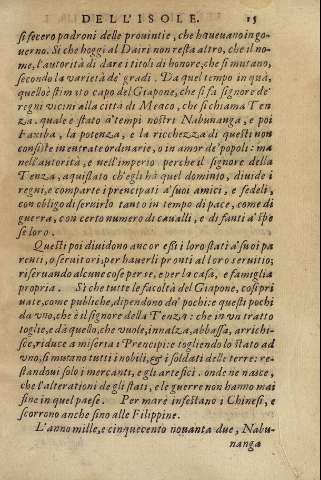 DELL'ISOLE. 15
si fecero padroni delle prouintie, che haueuano in go-
uerno. Si che hoggi al Dairi non resta altro, che il no-
me, l'autorità di dare i titoli di honore, che si mutano,
secondo la varietà de' gradi. Da quel tempo in quà,
quello è stimato capo del Giapone, che si fa signore de'
regni vicini alla città di Meaco, che si chiama Ten
za. quale è stato a' tempi nostri Nabunanga, e poi
Faxiba, la potenza, e la ricchezza di questi non
consiste in entrate ordinarie, o in amor de' popoli: ma
nell'autorità, e nell'imperio perche il signore della
Tenza, aquistato ch'egli hà quel dominio, diuide i
regni, e comparte i prencipati a' suoi amici, e fedeli,
con obligo di seruirlo tanto in tempo di pace, come di
guerra, con certo numero di caualli, e di fanti a' spe
se loro.
Questi poi diuidono ancor essi i loro stati a' suoi pa
renti, o seruitori, per hauerli pronti al loro seruitio;
riseruando alcune cose per se, e per la casa, e famiglia
propria. Si che tutte le facoltà del Giapone, cosi pri
uate, come publiche, dipendono da' pochi: e questi pochi
da vno, che è il signore della Tenza: che in vn tratto
toglie, e dà quello, che vuole, innalza, abbassa, arrichi-
sce, riduce a miseria i Prencipi: e togliendo lo stato ad
vno, si mutano tutti i nobili, & i soldati delle terre: re-
standoui solo i mercanti, e gli artefici. onde ne nasce,
che l'alterationi de gli stati, e le guerre non hanno mai
fine in quel paese. Per mare infestano i Chinesi, e
scorrono anche sino alle Filippine.
L'anno mille, e cinquecento nouanta due, Nabu-
nanga